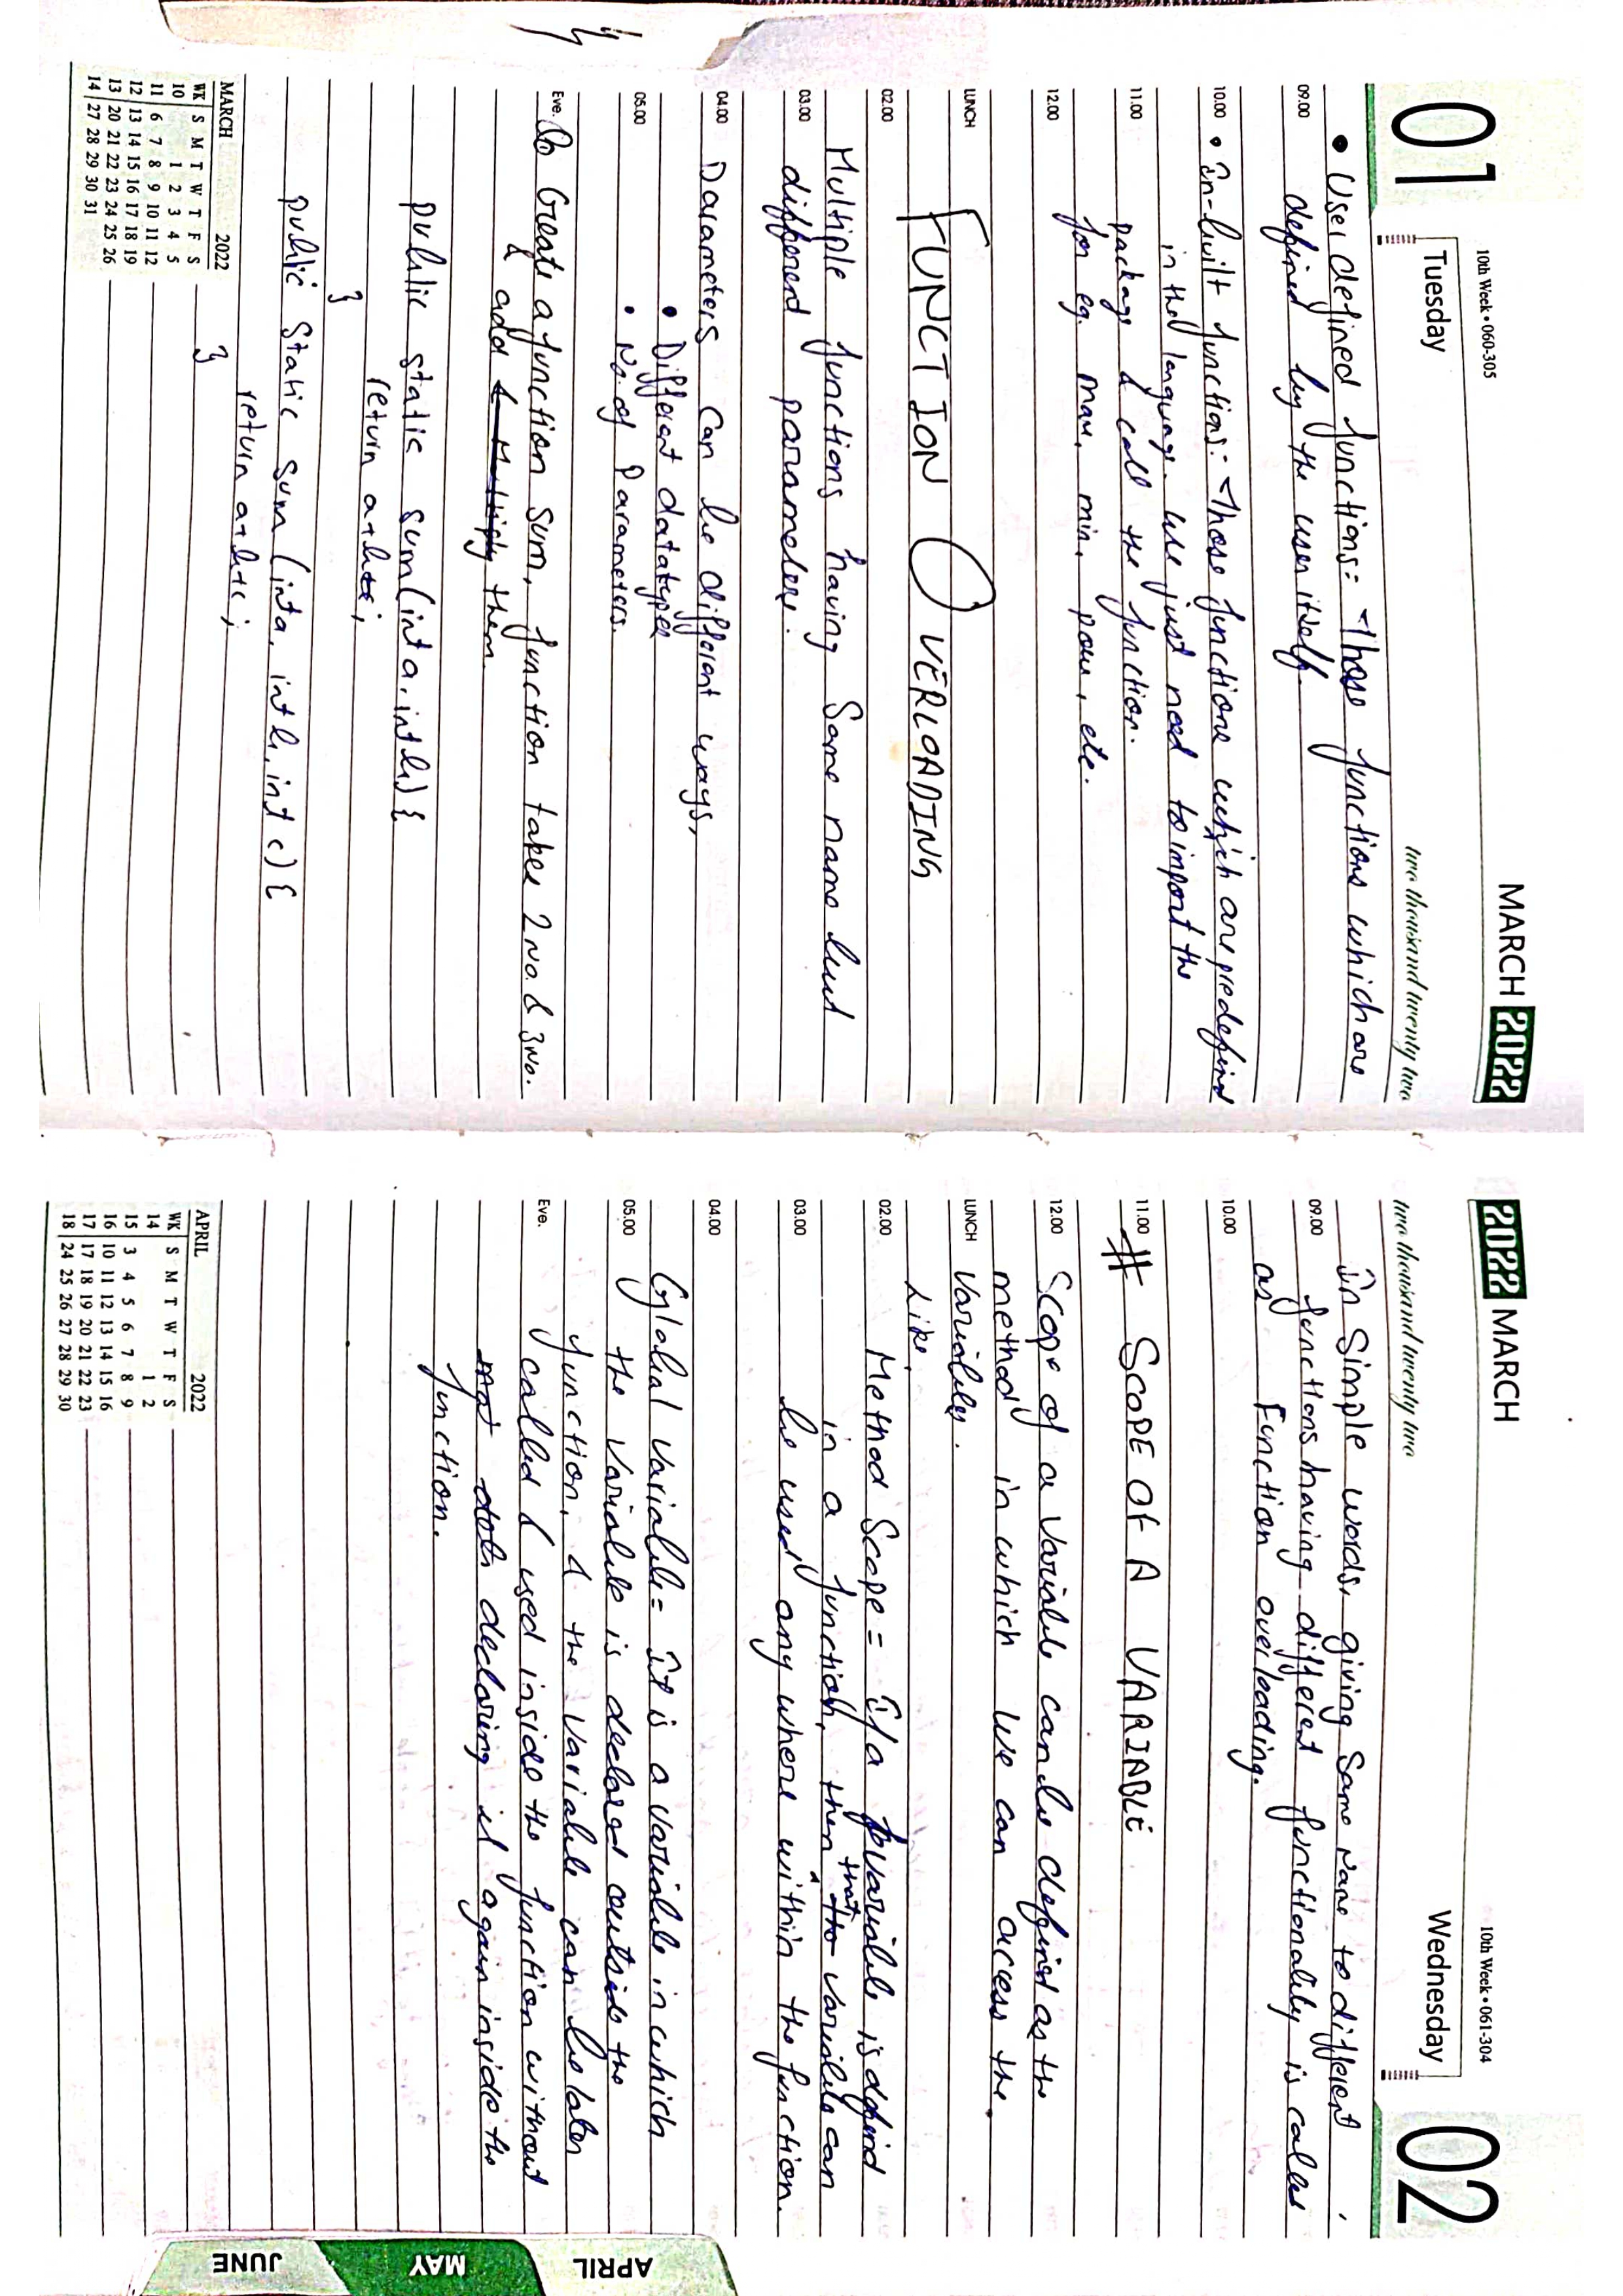 01
10th Week • 060-305
MARCH 2022
Tuesday
two thousand twenty two
• User defined functions:- Those functions which are
09.00
defined by the user itself.
10.00
• In-built functions:- Those functions which are predefined
in the language. We just need to import the
11.00
package & call the function.
for eg. max, min, pow, etc.
12.00
LUNCH
FUNCTION OVERLOADING
02.00
Multiple functions having Same name but
03.00
different parameters.
04.00
Parameters can be different ways,
• Different datatypes
05.00
• No. of Parameters.
Eve.
Q Create a function sum, function takes 2 No. & 3 No.
& add & Multiply them
public static sum(int a, int b) {
return a+b+c;
}
public static sum (int a, int b, int c) {
return a+b+c;
}
MARCH 2022
WK S M T W T F S
10 1 2 3 4 5
11 6 7 8 9 10 11 12
12 13 14 15 16 17 18 19
13 20 21 22 23 24 25 26
14 27 28 29 30 31
2022 MARCH
10th Week • 061-304
02
Wednesday
two thousand twenty two
In Simple words, giving Same Name to different
09.00
functions having different functionality is called
as Function overloading.
10.00
11.00
# SCOPE OF A VARIABLE
12.00
Scope of a Variable can be defined as the
method in which We can access the
LUNCH
Variables.
Like,
02.00
Method Scope = If a variable is defind
in a function, then that the variable can
03.00
be used any where within the function.
04.00
Global Variable = It is a variable in which
05.00
the Variable is declared outside the
function, & the Variable can be later
Eve.
called & used inside the function without
declaring it again inside the
function.
APRIL 2022
WK S M T W T F S
14 1 2
15 3 4 5 6 7 8 9
16 10 11 12 13 14 15 16
17 17 18 19 20 21 22 23
18 24 25 26 27 28 29 30
APRIL
MAY
JUNE